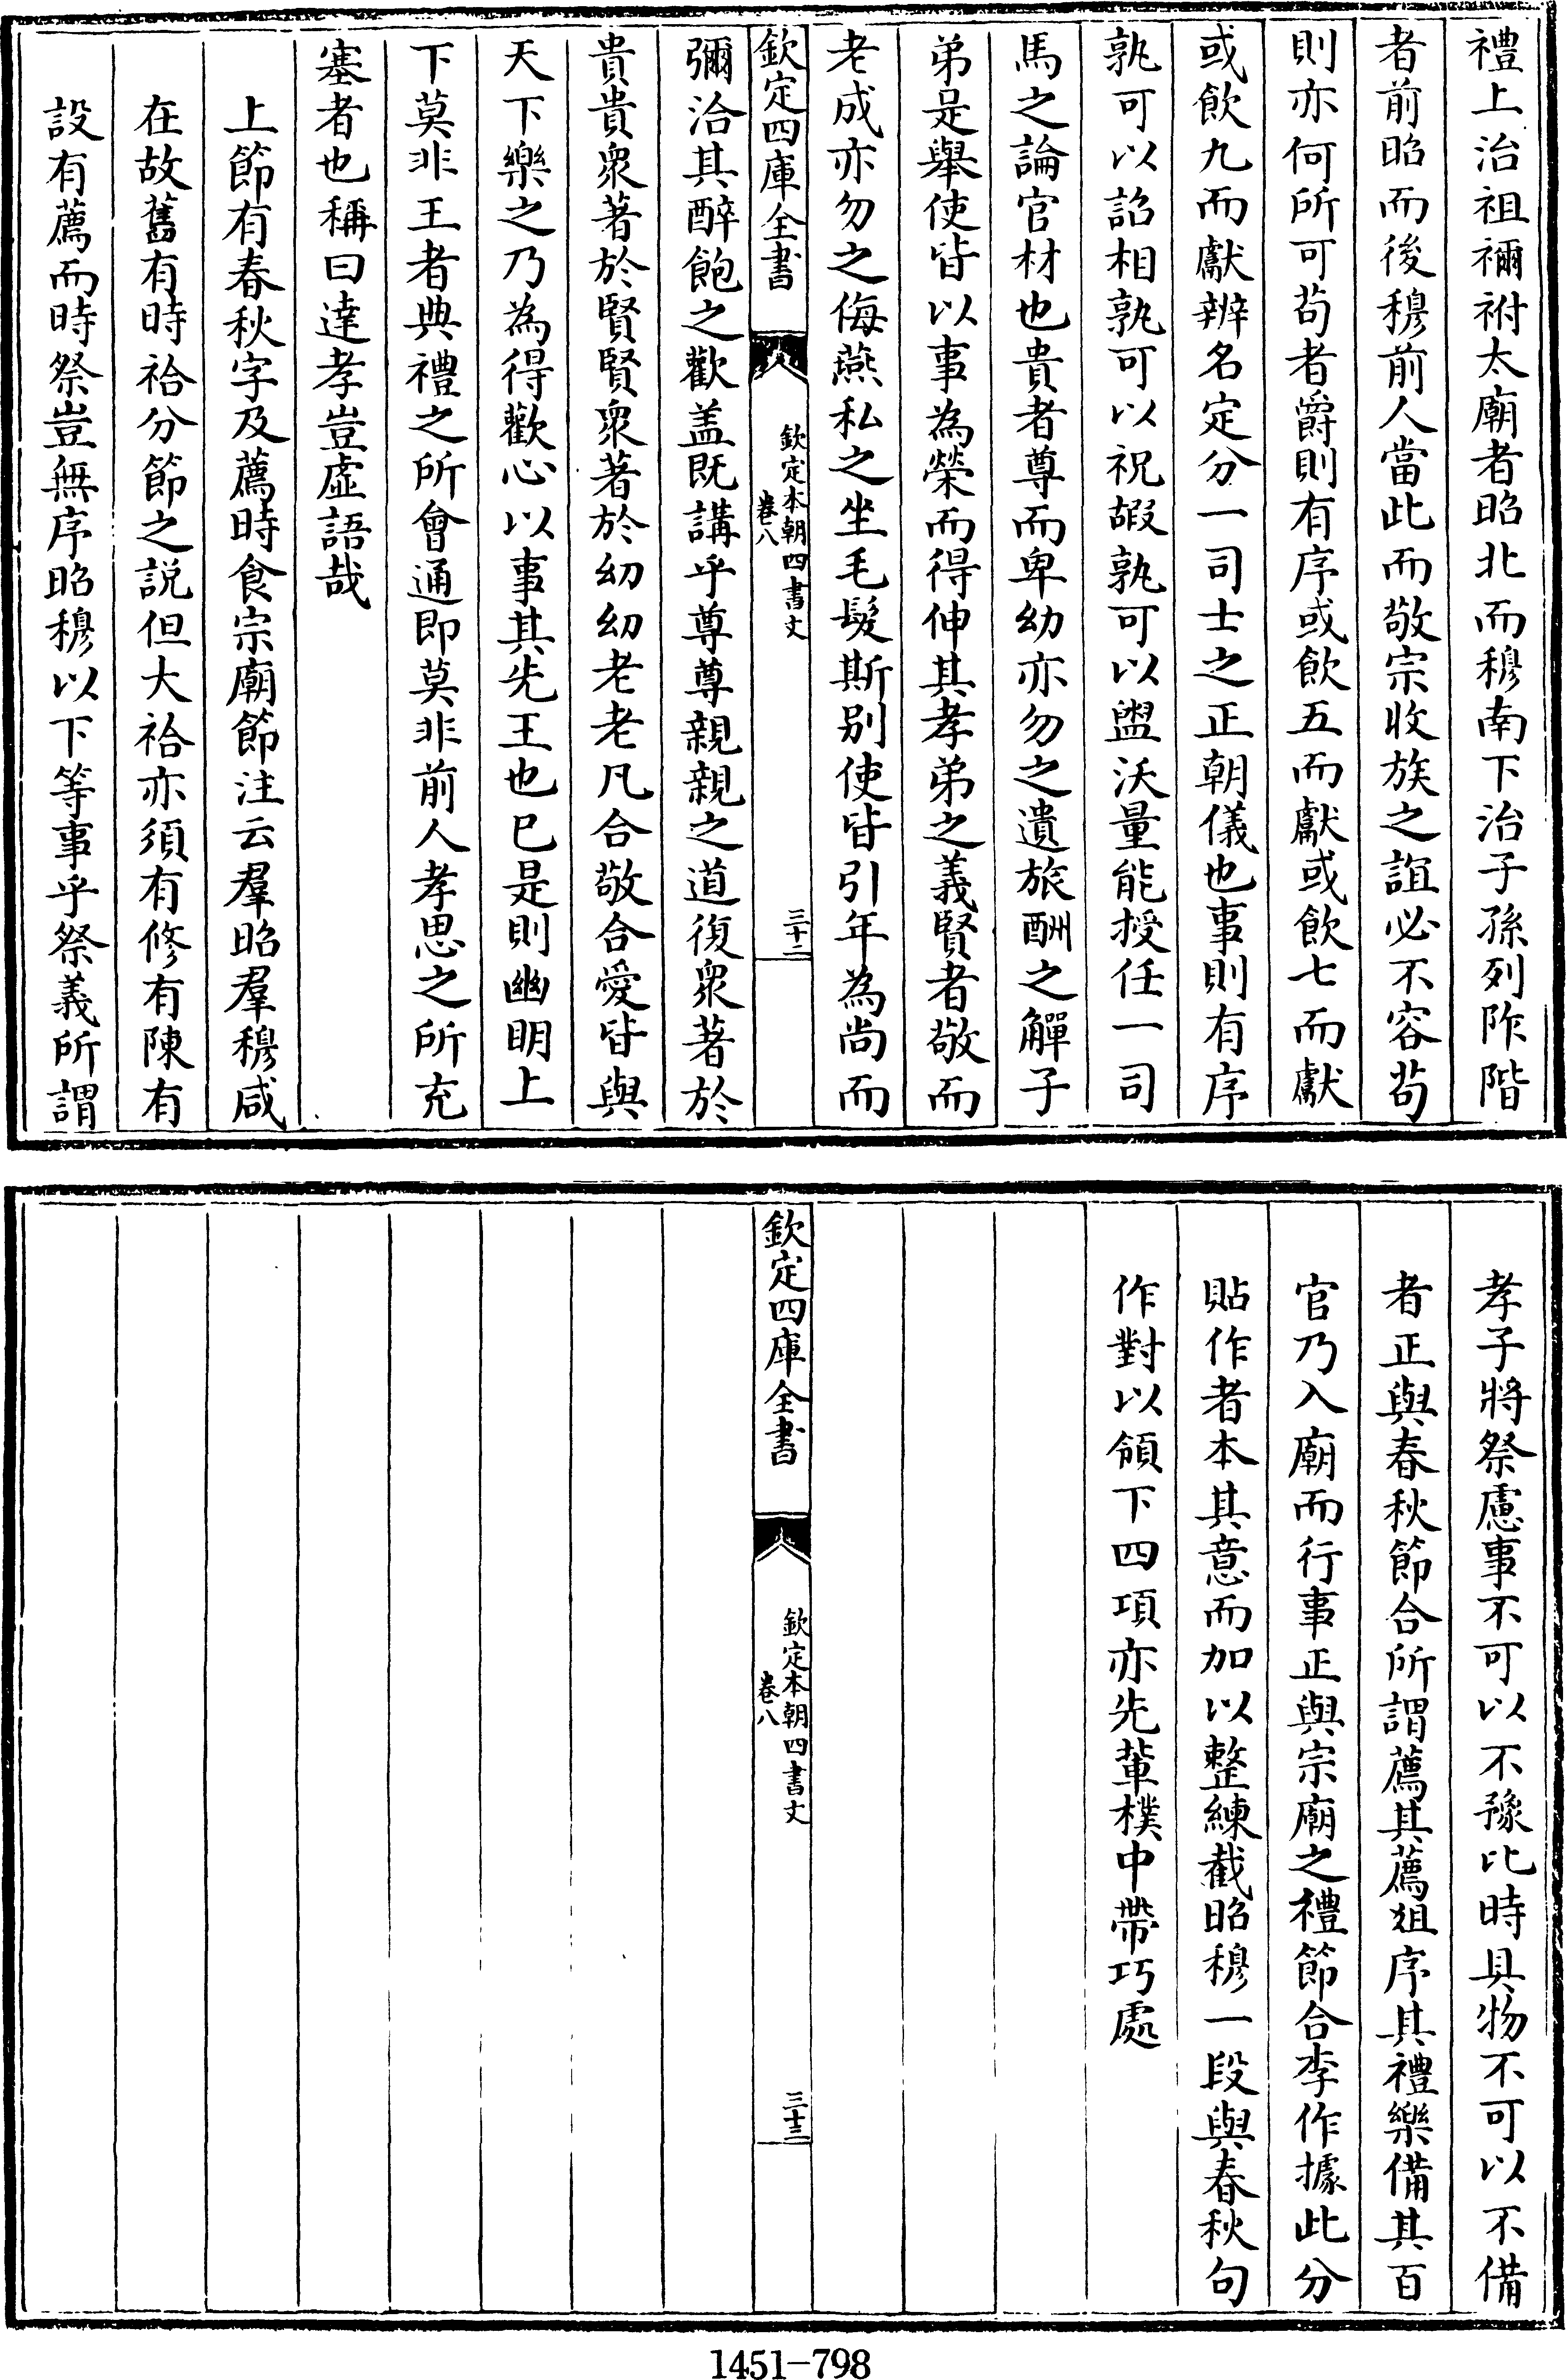 禮上治祖禰祔太廟者昭北而穆南下治子孫列阼階
者前昭而後穆前人當此而敬宗收族之誼必不容苟
則亦何所可苟者爵則有序或飲五而獻或飲七而獻
或飲九而獻辨名定分一司士之正朝儀也事則有序
孰可以詔相孰可以祝嘏孰可以盥沃量能授任一司
馬之論官材也貴者尊而卑幼亦勿之遺旅酬之觶子
弟是舉使皆以事為榮而得伸其孝弟之義賢者敬而
老成亦勿之侮燕私之坐毛髮斯別使皆引年為尚而
欽定四庫全書
欽定本朝四書文
卷八
三十二
彌洽其醉飽之歡盖既講乎尊尊親親之道復衆著於
貴貴衆著於賢賢衆著於幼幼老老凡合敬合愛皆與
天下樂之乃為得歡心以事其先王也已是則幽明上
下莫非王者典禮之所會通即莫非前人孝思之所充
塞者也稱曰達孝豈虛語哉
上節有春秋字及薦時食宗廟節注云羣昭羣穆咸
在故舊有時祫分節之説但大祫亦須有修有陳有
設有薦而時祭豈無序昭穆以下等事乎祭義所謂
孝子將祭慮事不可以不豫比時具物不可以不備
者正與春秋節合所謂薦其薦俎序其禮樂備其百
官乃入廟而行事正與宗廟之禮節合李作據此分
貼作者本其意而加以整練截昭穆一段與春秋句
作對以領下四項亦先輩樸中帶巧處
欽定四庫全書
欽定本朝四書文
卷八
三十三
1451-798